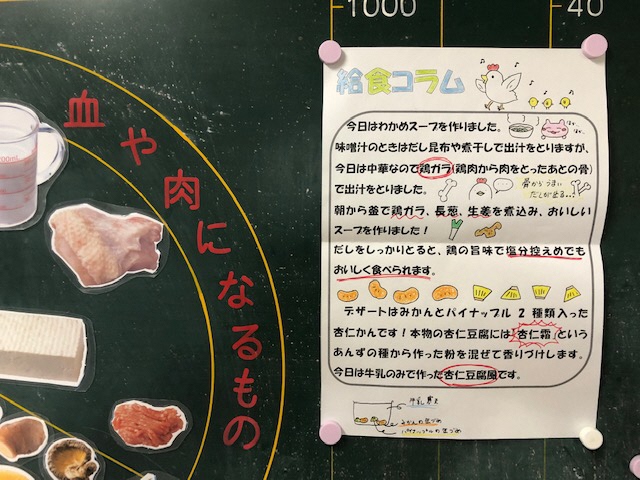 1000
40
血や肉になるもの
給食コラム
今日はわかめスープを作りました。
味噌汁のときはだし昆布や煮干しで出汁をとりますが、
今日は中華なので鶏ガラ(鶏肉から肉をとったあとの骨)
で出汁をとりました。
骨からうまい
だしが出る…!
朝から釜で鶏ガラ、長葱、生姜を煮込み、おいしい
スープを作りました!
だしをしっかりとると、鶏の旨味で塩分控えめでも
おいしく食べられます。
デザートはみかんとパイナップル2種類入った
杏仁かんです!本物の杏仁豆腐には杏仁霜という
あんずの種から作った粉を混ぜて香りづけします。
今日は牛乳のみで作った杏仁豆腐風です。
牛乳寒天
みかんの缶づめ
パイナップルの缶づめ